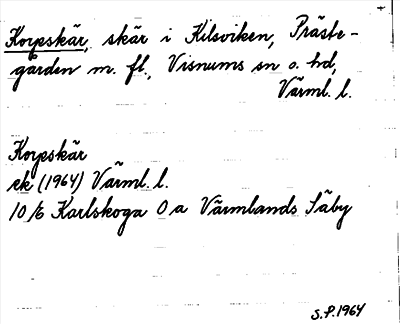 Korpskär, skär i Kilsviken, Präste-
gården m. fl., Visnums sn o. hd,
Värml. l.
Korpskär
ek (1964) Värml. l.
10/6 Karlskoga O a Värmlands Säby
S.P. 1964